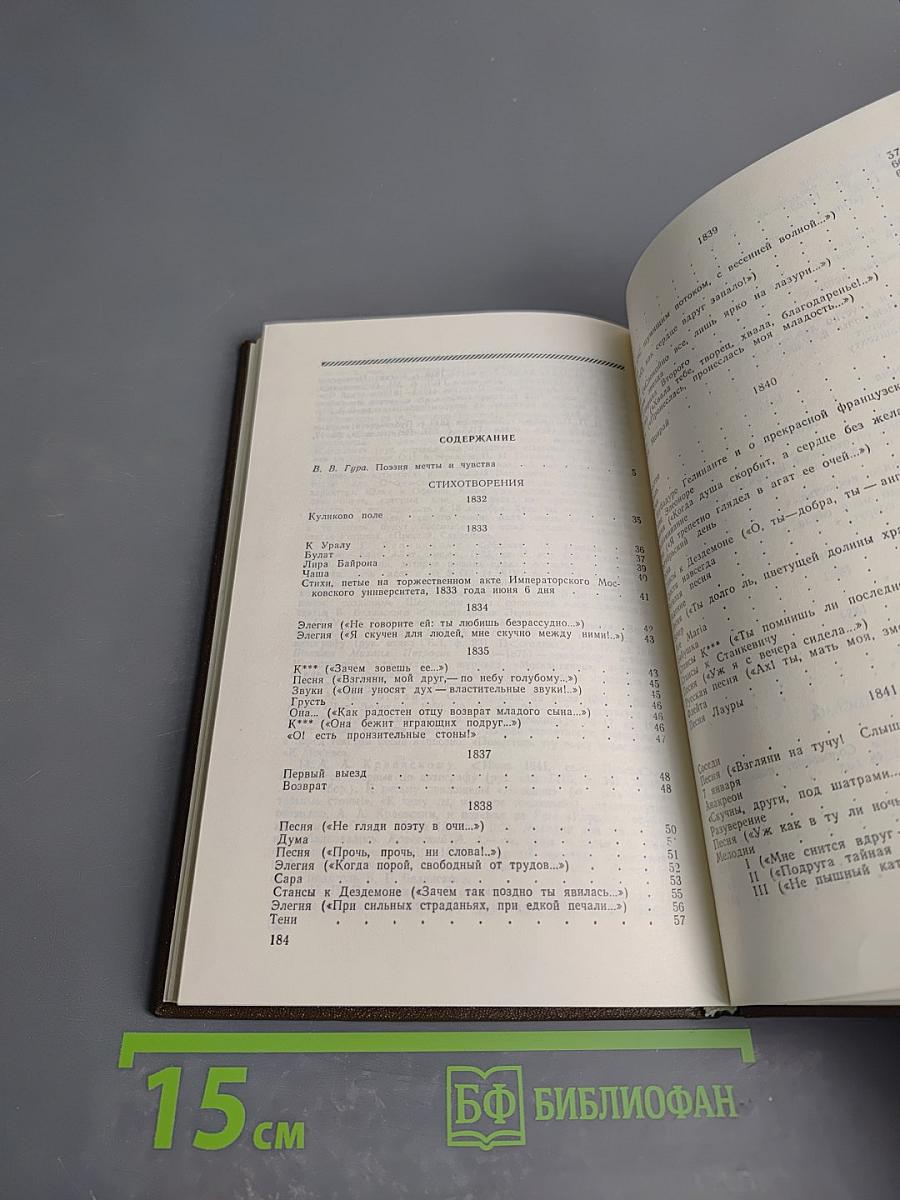 СОДЕРЖАНИЕ
В. В. Гура. Поэзия мечты и чувства . . . . . . . . 5
СТИХОТВОРЕНИЯ
1832
Куликово поле . . . . . . . . 35
1833
К Уралу . . . . . . . . 36
Булат . . . . . . . . 37
Лира Байрона . . . . . . . . 39
Чаша . . . . . . . . 40
Стихи, петые на торжественном акте Императорского Мос-
ковского университета, 1833 года июня 6 дня . . 41
1834
Элегия («Не говорите ей: ты любишь безрассудно...») . 42
Элегия («Я скучен для людей, мне скучно между ними!..») 43
1835
К*** («Зачем зовешь ее...») . . . . . . . . 43
Песня («Взгляни, мой друг,— по небу голубому...») . . 45
Звуки («Они уносят дух — властительные звуки!..») . . 45
Грусть . . . . . . . . 46
Она... («Как радостен отцу возврат младого сына...») . . 46
К*** («Она бежит играющих подруг...») . . . . . 46
«О! есть пронзительные стоны!» . . . . . . 47
1837
Первый выезд . . . . . . . . 48
Возврат . . . . . . . . 48
1838
Песня («Не гляди поэту в очи...») . . . . . . 50
Дума . . . . . . . .
Песня («Прочь, прочь, ни слова!..») . . . . . . 51
Элегия («Когда порой, свободный от трудов...») . . . 52
Сара . . . . . . . . 53
Стансы к Дездемоне («Зачем так поздно ты явилась...») . 55
Элегия («При сильных страданьях, при едкой печали...») . 56
Тени . . . . . . . . 57
184
1839
потоком, с весенней волной...»)
как сердце вдруг запало!»)
все, лишь ярко на лазури...»)
Второго
тебе, творец, хвала, благодаренье!..»)
пронеслась моя младость...»)
1840
Гелинанте и о прекрасной
Элеоноре
(«Когда душа скорбит, а сердце без
(«Я трепетно глядел в агат ее очей...»)
день
к Дездемоне («О, ты—добра, ты —
навсегда
песня
(«Ты долго ль, цветущей долины
Maria
К*** («Ты помнишь ли
к Станкевичу
(«Уж я с вечера сидела...»)
песня («Ах! ты, мать моя,
Песня Лауры
1841
Соседи
Песня («Взгляни на тучу!
7 января
Анакреон
«Скучны, други, под шатрами...
Разуверение
Песня («Уж как в ту ли ночь
Мелодии
I («Мне снится вдруг
II («Подруга тайная
III («Не пышный
15 см
БФ БИБЛИОФАН